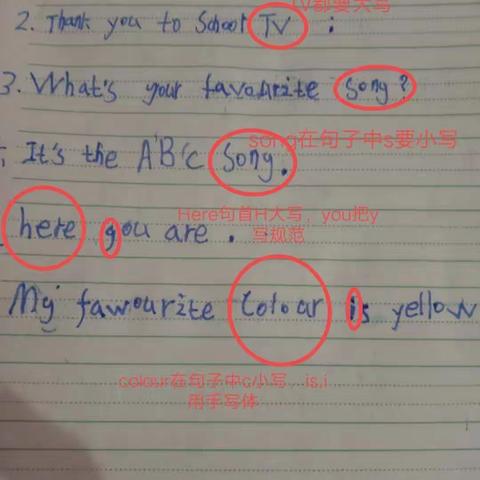 TV都要大写
2. Thank you to School TV :
3. What's your favourite Song?
song在句子中s要小写
It's the A'B'C Song.
Here句首H大写，you把y
写规范
here you are .
My fawourite Colour is yellow
colour在句子中c小写 is,i
用手写体